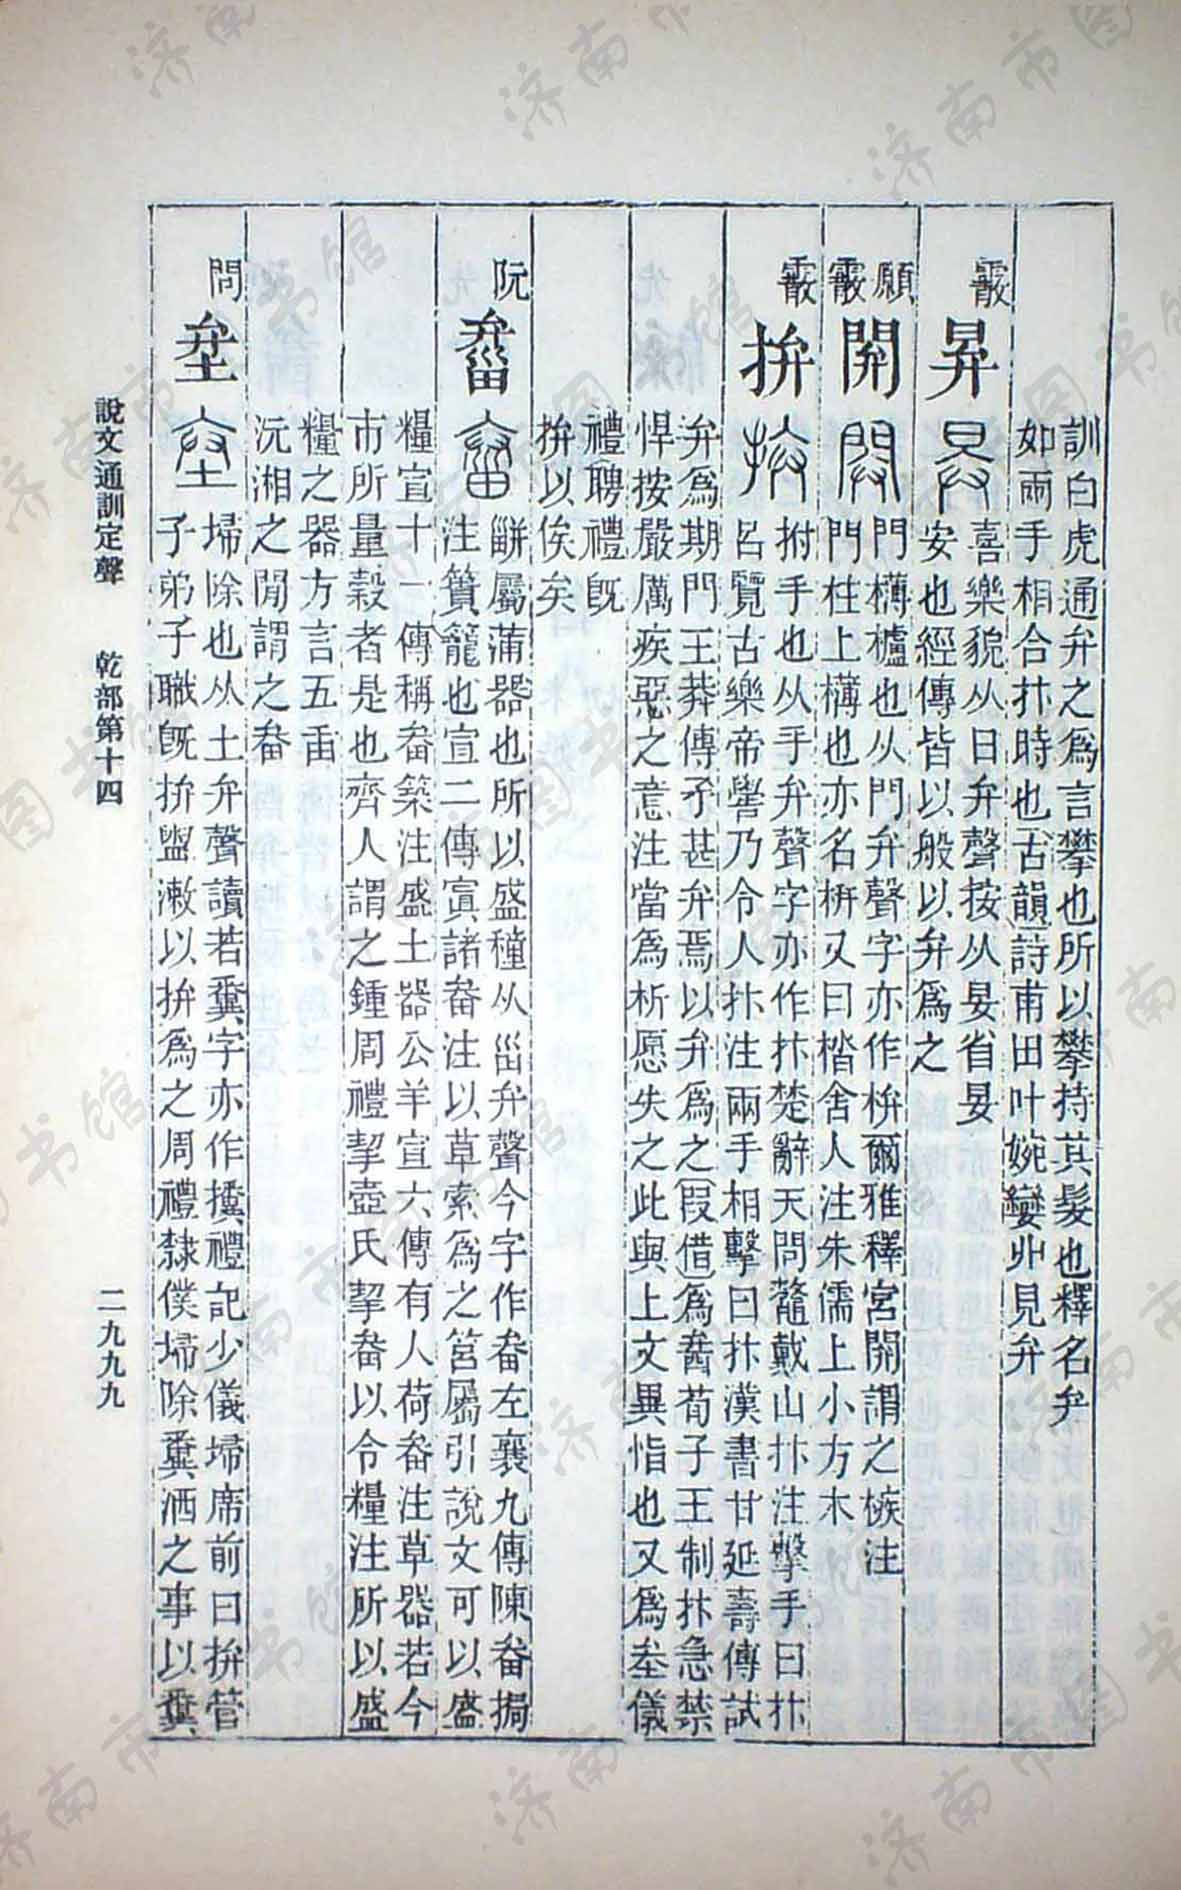 訓白虎通弁之爲言攀也所以攀持其髮也釋名弁
如兩手相合抃時也古韻詩甫田叶婉孌丱見弁
霰
昪
喜樂貌从日弁聲按从晏省晏
安也經傳皆以般以弁爲之
願
霰
開
門欂櫨也从門弁聲字亦作枅爾雅釋宮開謂之槉注
門柱上欂也亦名枅又曰楷舍人注朱儒上小方木
霰
拚
拊手也从手弁聲字亦作抃楚辭天問鼇戴山抃注擊手曰抃
呂覽古樂帝嚳乃令人抃注兩手相擊曰抃漢書甘延壽傳試
弁爲期門王莽傳予甚弁焉以弁爲之叚借爲㫺荀子王制抃急禁
悍按嚴厲疾惡之意注當爲析愿失之此與上文異恉也又爲坴儀
禮聘禮旣
拚以俟矣
阮
畚
䉛屬蒲器也所以盛種从甾弁聲今字作畚左襄九傳陳畚挶
注簣籠也宣二傳寘諸畚注以草索爲之筥屬引說文可以盛
糧宣十一傳稱畚築注盛土器公羊宣六傳有人荷畚注草器若今
市所量穀者是也齊人謂之鍾周禮挈壺氏挈畚以令糧注所以盛
糧之器方言五臿
沅湘之閒謂之畚
問
坌
埽除也从土弁聲讀若糞字亦作㩌禮記少儀埽席前曰拚管
子弟子職旣拚盥漱以拚爲之周禮隸僕埽除糞洒之事以糞
說文通訓定聲　乾部第十四　二九九九